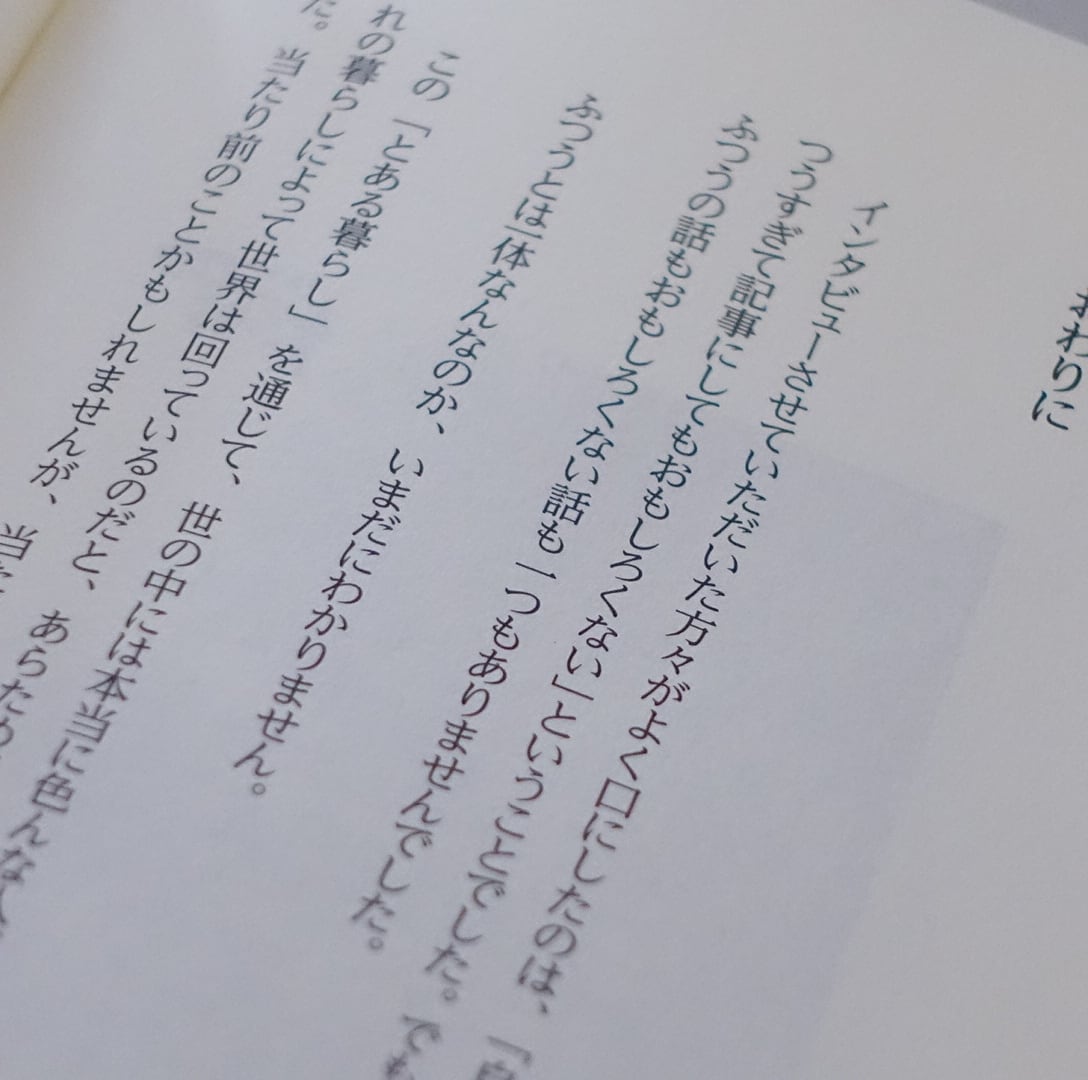 おわりに
インタビューさせていただいた方々がよく口にしたのは、「
つうすぎて記事にしてもおもしろくない」ということでした。でも
ふつうの話もおもしろくない話も一つもありませんでした。
ふつうとは一体なんなのか、いまだにわかりません。
この「とある暮らし」を通じて、世の中には本当に色んな
れの暮らしによって世界は回っているのだと、あらため
た。当たり前のことかもしれませんが、当た